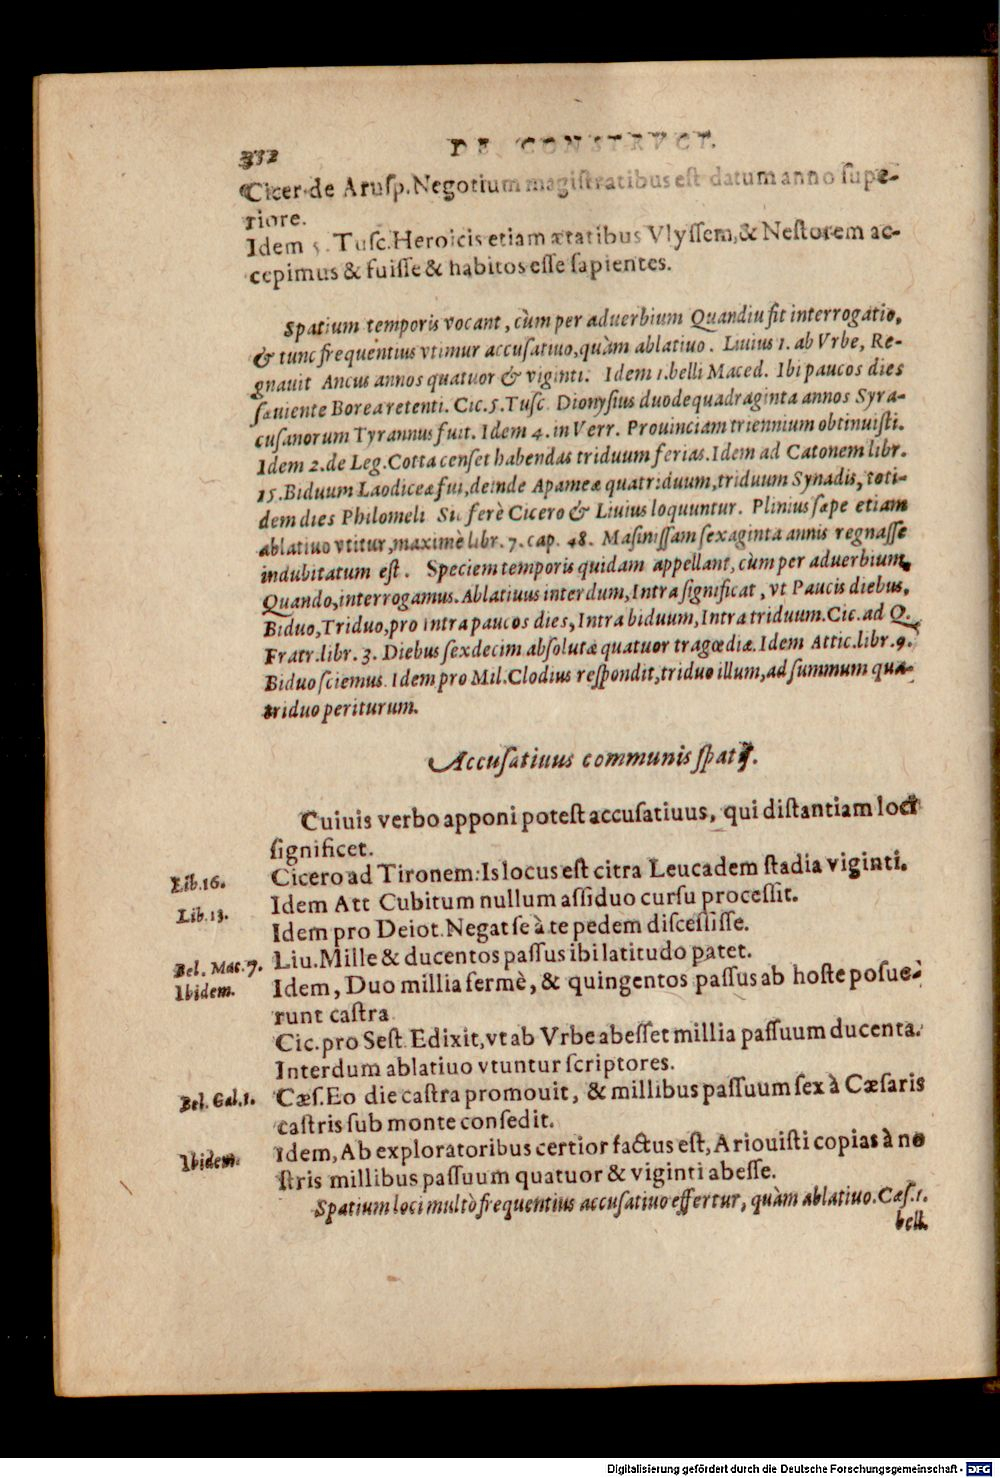 332 DE CONSTRVCT.
Cicer. de Arusp. Negotium magistratibus est datum anno supe-
riore.
Idem 5. Tusc. Heroicis etiam ætatibus Vlyssem, & Nestorem ac-
cepimus & fuisse & habitos esse sapientes.
Spatium temporis vocant, cùm per aduerbium Quandiu fit interrogatio,
& tunc frequentius vtimur accusatiuo, quàm ablatiuo. Liuius 1. ab Vrbe, Re-
gnauit Ancus annos quatuor & viginti. Idem 1. belli Maced. Ibi paucos dies
sæuiente Borea retenti. Cic. 5. Tusc. Dionysius duodequadraginta annos Syra-
cusanorum Tyrannus fuit. Idem 4. in Verr. Prouinciam triennium obtinuisti.
Idem 2. de Leg. Cotta censet habendas triduum ferias. Idem ad Catonem libr.
15. Biduum Laodiceæ fui, deinde Apameæ quatriduum, triduum Synadis, toti-
dem dies Philomeli Sic ferè Cicero & Liuius loquuntur. Plinius sæpe etiam
ablatiuo vtitur, maximè libr. 7. cap. 48. Masinissam sexaginta annis regnasse
indubitatum est. Speciem temporis quidam appellant, cùm per aduerbium,
Quando, interrogamus. Ablatiuus interdum, Intra significat, vt Paucis diebus,
Biduo, Triduo, pro intra paucos dies, Intra biduum, Intra triduum. Cic. ad Q.
Fratr. libr. 3. Diebus sexdecim absolutæ quatuor tragœdiæ. Idem Attic. libr. 9.
Biduo sciemus. Idem pro Mil. Clodius respondit, triduo illum, ad summum qua-
triduo periturum.
Accusatiuus communis spatij.
Cuiuis verbo apponi potest accusatiuus, qui distantiam loci
significet.
Lib. 16. Cicero ad Tironem: Is locus est citra Leucadem stadia viginti.
Lib. 13. Idem Att Cubitum nullum assiduo cursu processit.
Idem pro Deiot. Negat se à te pedem discessisse.
Bel. Mac. 7. Liu. Mille & ducentos passus ibi latitudo patet.
Ibidem. Idem, Duo millia fermè, & quingentos passus ab hoste posue-
runt castra
Cic. pro Sest. Edixit, vt ab Vrbe abesset millia passuum ducenta.
Interdum ablatiuo vtuntur scriptores.
Bel. Gal. 1. Cæs. Eo die castra promouit, & millibus passuum sex à Cæsaris
castris sub monte consedit.
Ibidem. Idem, Ab exploratoribus certior factus est, Ariouisti copias à no
stris millibus passuum quatuor & viginti abesse.
Spatium loci multò frequentius accusatiuo effertur, quàm ablatiuo. Cæs. 1.
bell.
Digitalisierung gefördert durch die Deutsche Forschungsgemeinschaft - DFG